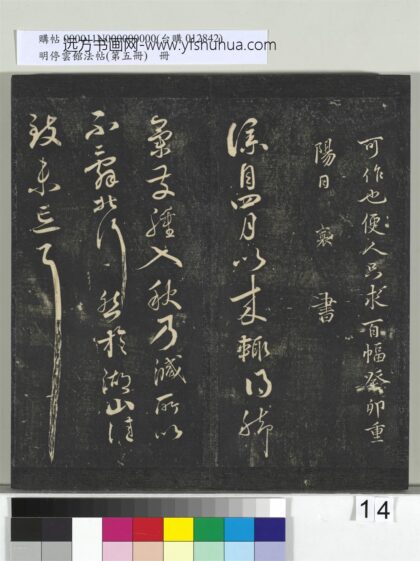 購帖 000011N000000000(台購 012842)
明停雲館法帖(第五冊) 冊
远方书画网-www.yfshuhua.com
可作也便人只求百幅癸卯重
陽日 襄 書
襄自四月以來輒得腳
氣發腫入秋乃減所以
不辭北行然於湖山佳
致未忘耳
14